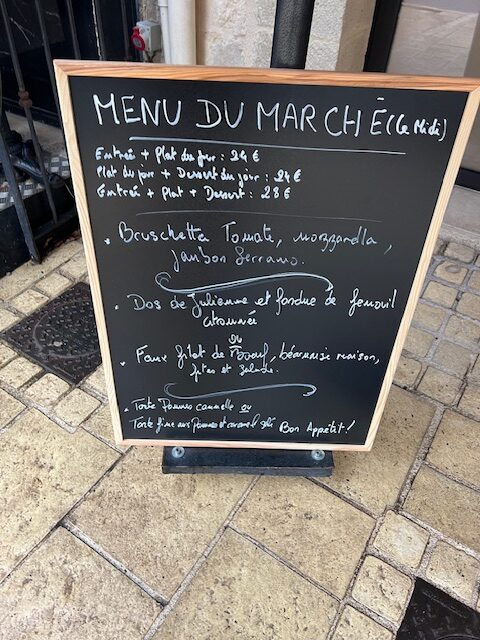 MENU DU MARCHÉ (Le Midi)
Entrée + Plat du jour : 24 €
Plat du jour + Dessert du jour : 24 €
Entrée + Plat + Dessert : 28 €
• Bruschetta Tomate, mozzarella,
Jambon Serrano.
• Dos de Julienne et fondue de fenouil
citronnée
ou
• Faux filet de Boeuf, béarnaise maison,
frites et salade.
• Tarte Pommes cannelle ou
Tarte fine aux Pommes et caramel salé Bon Appétit !